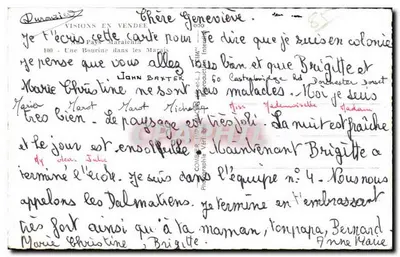 Chère Geneviève
VISIONS EN VENDEE
Je t'écris cette carte pour te dire que je suis en colonie
Pays Maraichin
100 - Une Bourine dans les Marais
je pense que vous allez tous bien et que Brigitte et
JOHN BAXTER
Marie Christine ne sont pas malades. Moi je suis
Maria Marot Marot Michelle Miss Mademoiselle Madame
très bien. Le paysage est très joli. La nuit est fraîche
et le jour est ensoleillé. Maintenant Brigitte a
My dear Julie
terminé l'école. Je suis dans l'équipe n° 4. Nous nous
appelons les Dalmatiens. Je termine en t'embrassant
très fort ainsi qu'à ta maman, tonpapa, Bernard
Marie Christine, Brigitte. Anne Marie